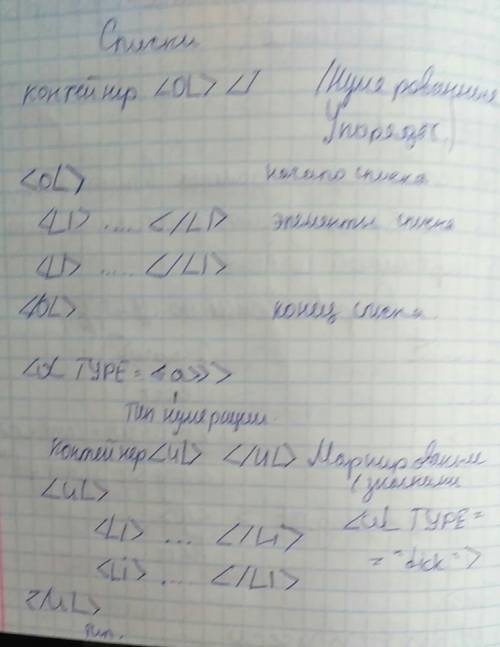 Списки
контейнер <OL> </ (Нумерованные
Упорядоч.)
<OL> начало списка
<LI> ..... </LI> элементы списка
<LI> ..... </LI>
</OL> конец списка
<OL TYPE = «a»>
тип нумерации
контейнер <UL> </UL> Маркированные
(значками
<UL>
<LI> ... </LI> <UL TYPE =
<LI> ... </LI>
</UL>